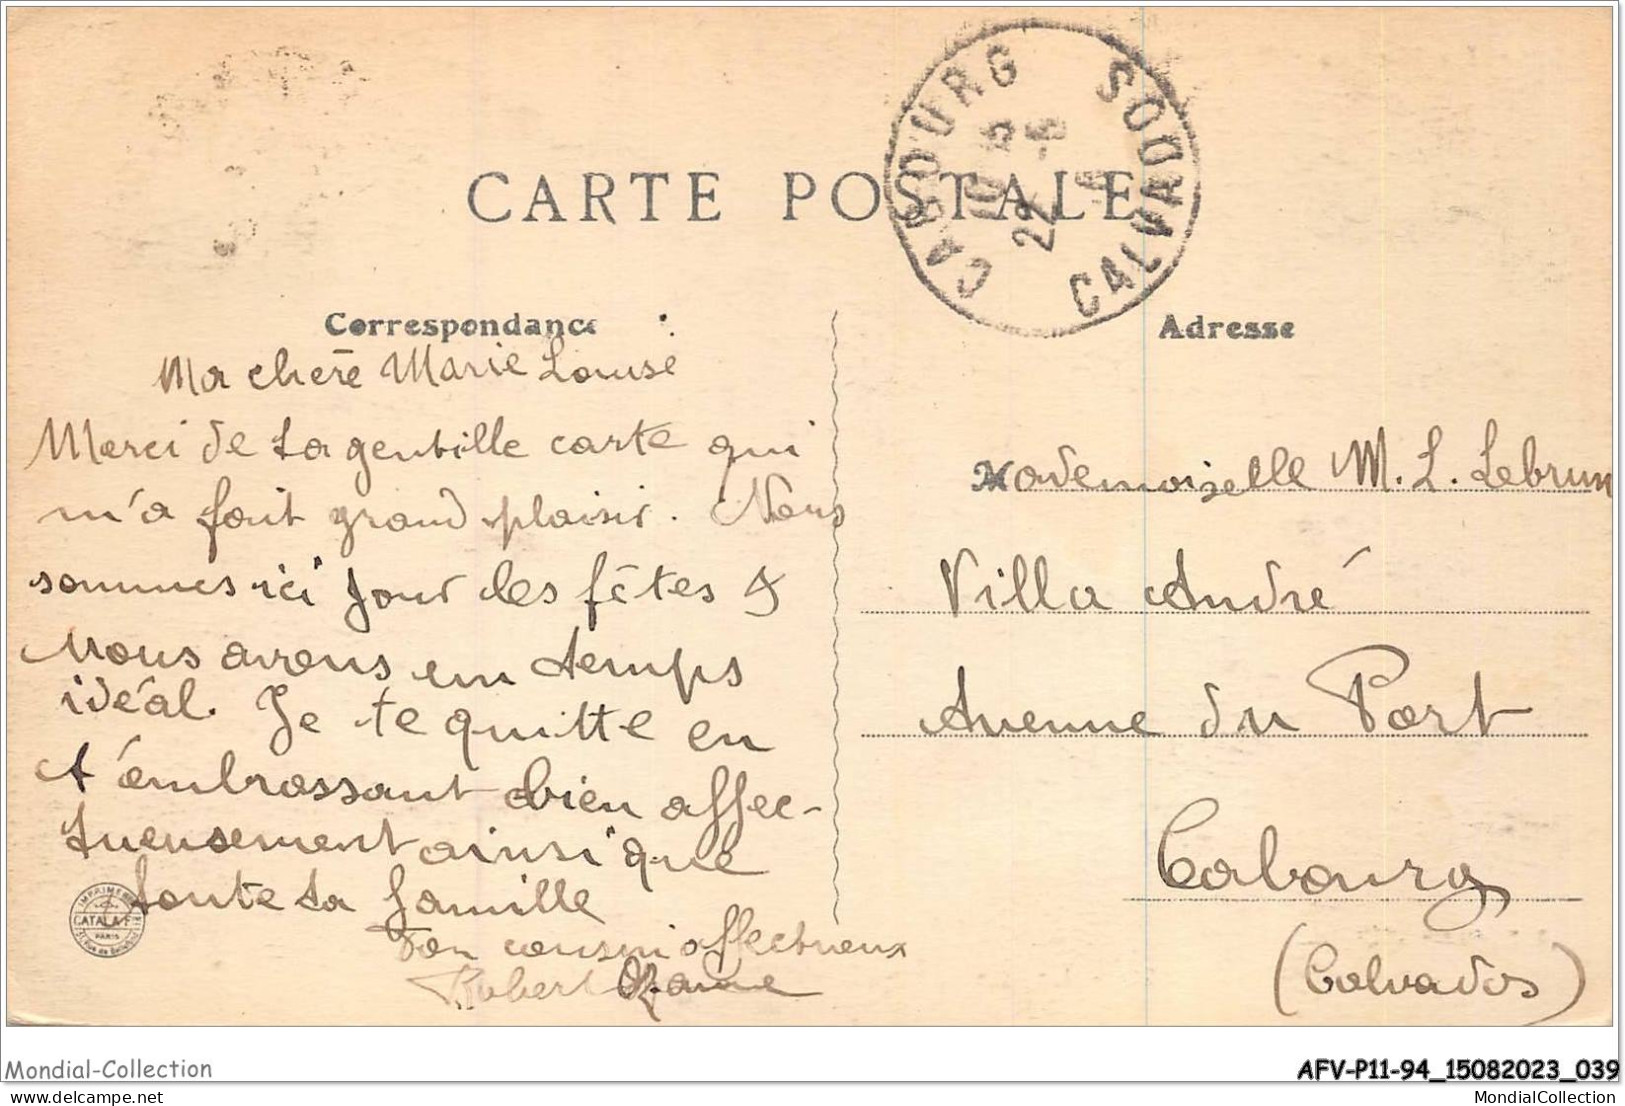 CARTE POSTALE
CABOURG
CALVADOS
10 15
22
Correspondance
Ma chère Marie Louise
Merci de ta gentille carte qui
m'a fait grand plaisir. Nous
sommes ici pour les fêtes &
nous avons un temps
idéal. Je te quitte en
t'embrassant bien affec-
tueusement ainsi que
toute ta famille
Ton cousin affectueux
Robert Ozanne
Adresse
Mademoiselle M. L. Lebrun
Villa André
Avenue du Port
Cabourg
(Calvados)
IMPRIMERIE
CATALA F.
PARIS
Mondial-Collection
AFV-P11-94_15082023_039
MondialCollection.com
MondialCollection